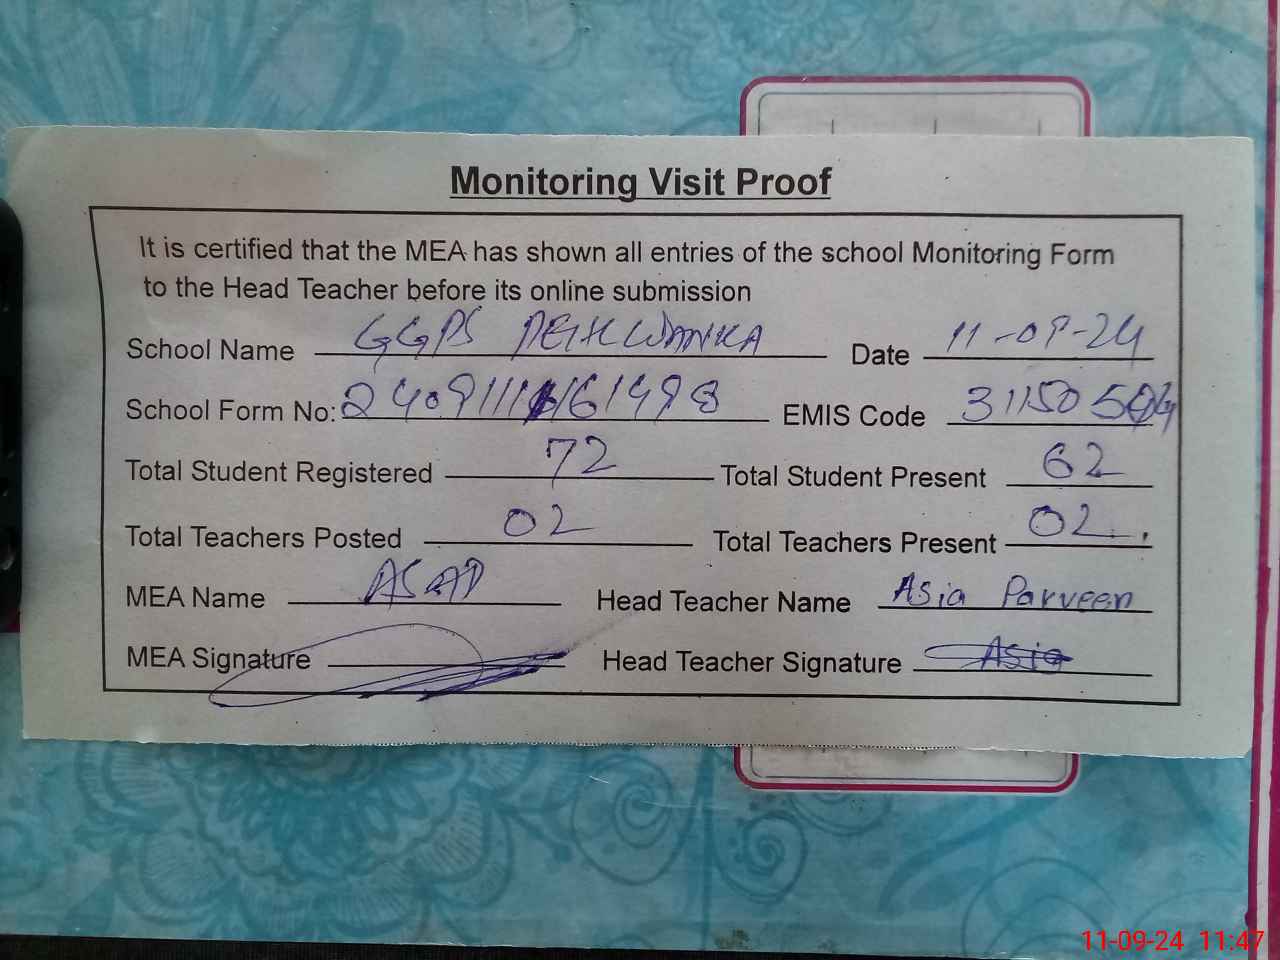 Monitoring Visit Proof
It is certified that the MEA has shown all entries of the school Monitoring Form
to the Head Teacher before its online submission
School Name GGPS Date 11-09-24
School Form No: EMIS Code
Total Student Registered 72 Total Student Present 62
Total Teachers Posted 02 Total Teachers Present 02
MEA Name ASAD Head Teacher Name Asia Parveen
MEA Signature Head Teacher Signature Asia
11-09-24 11:47